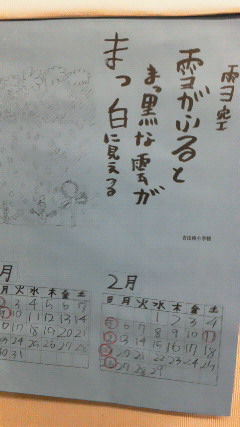 雪空
雪がふると
まっ黒な雲が
まっ白に見える
月
月 火 水 木 金 土
2 3 4 5 6 7
9 10 11 12 13 14
17 18 19 20 21
24 25 26 27 28
30 31
2月
日 月 火 水 木 金 土
1 2 3 4
5 6 7 8 9 10 11
12 13 14 15 16 17 18
19 20 21 22 23 24 25
26 27 28 29